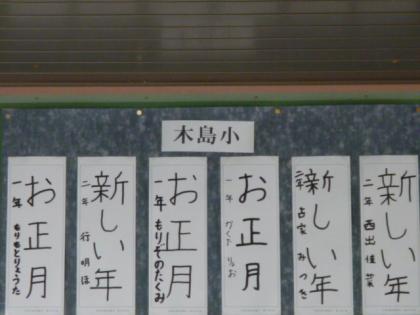 木島小
新しい年
二年 西出佳菜
新しい年
二年 古家みつき
お正月
一年 りお
お正月
一年 もりぞのたくみ
新しい年
二年 行明ほ
お正月
一年 もりもとりょうた